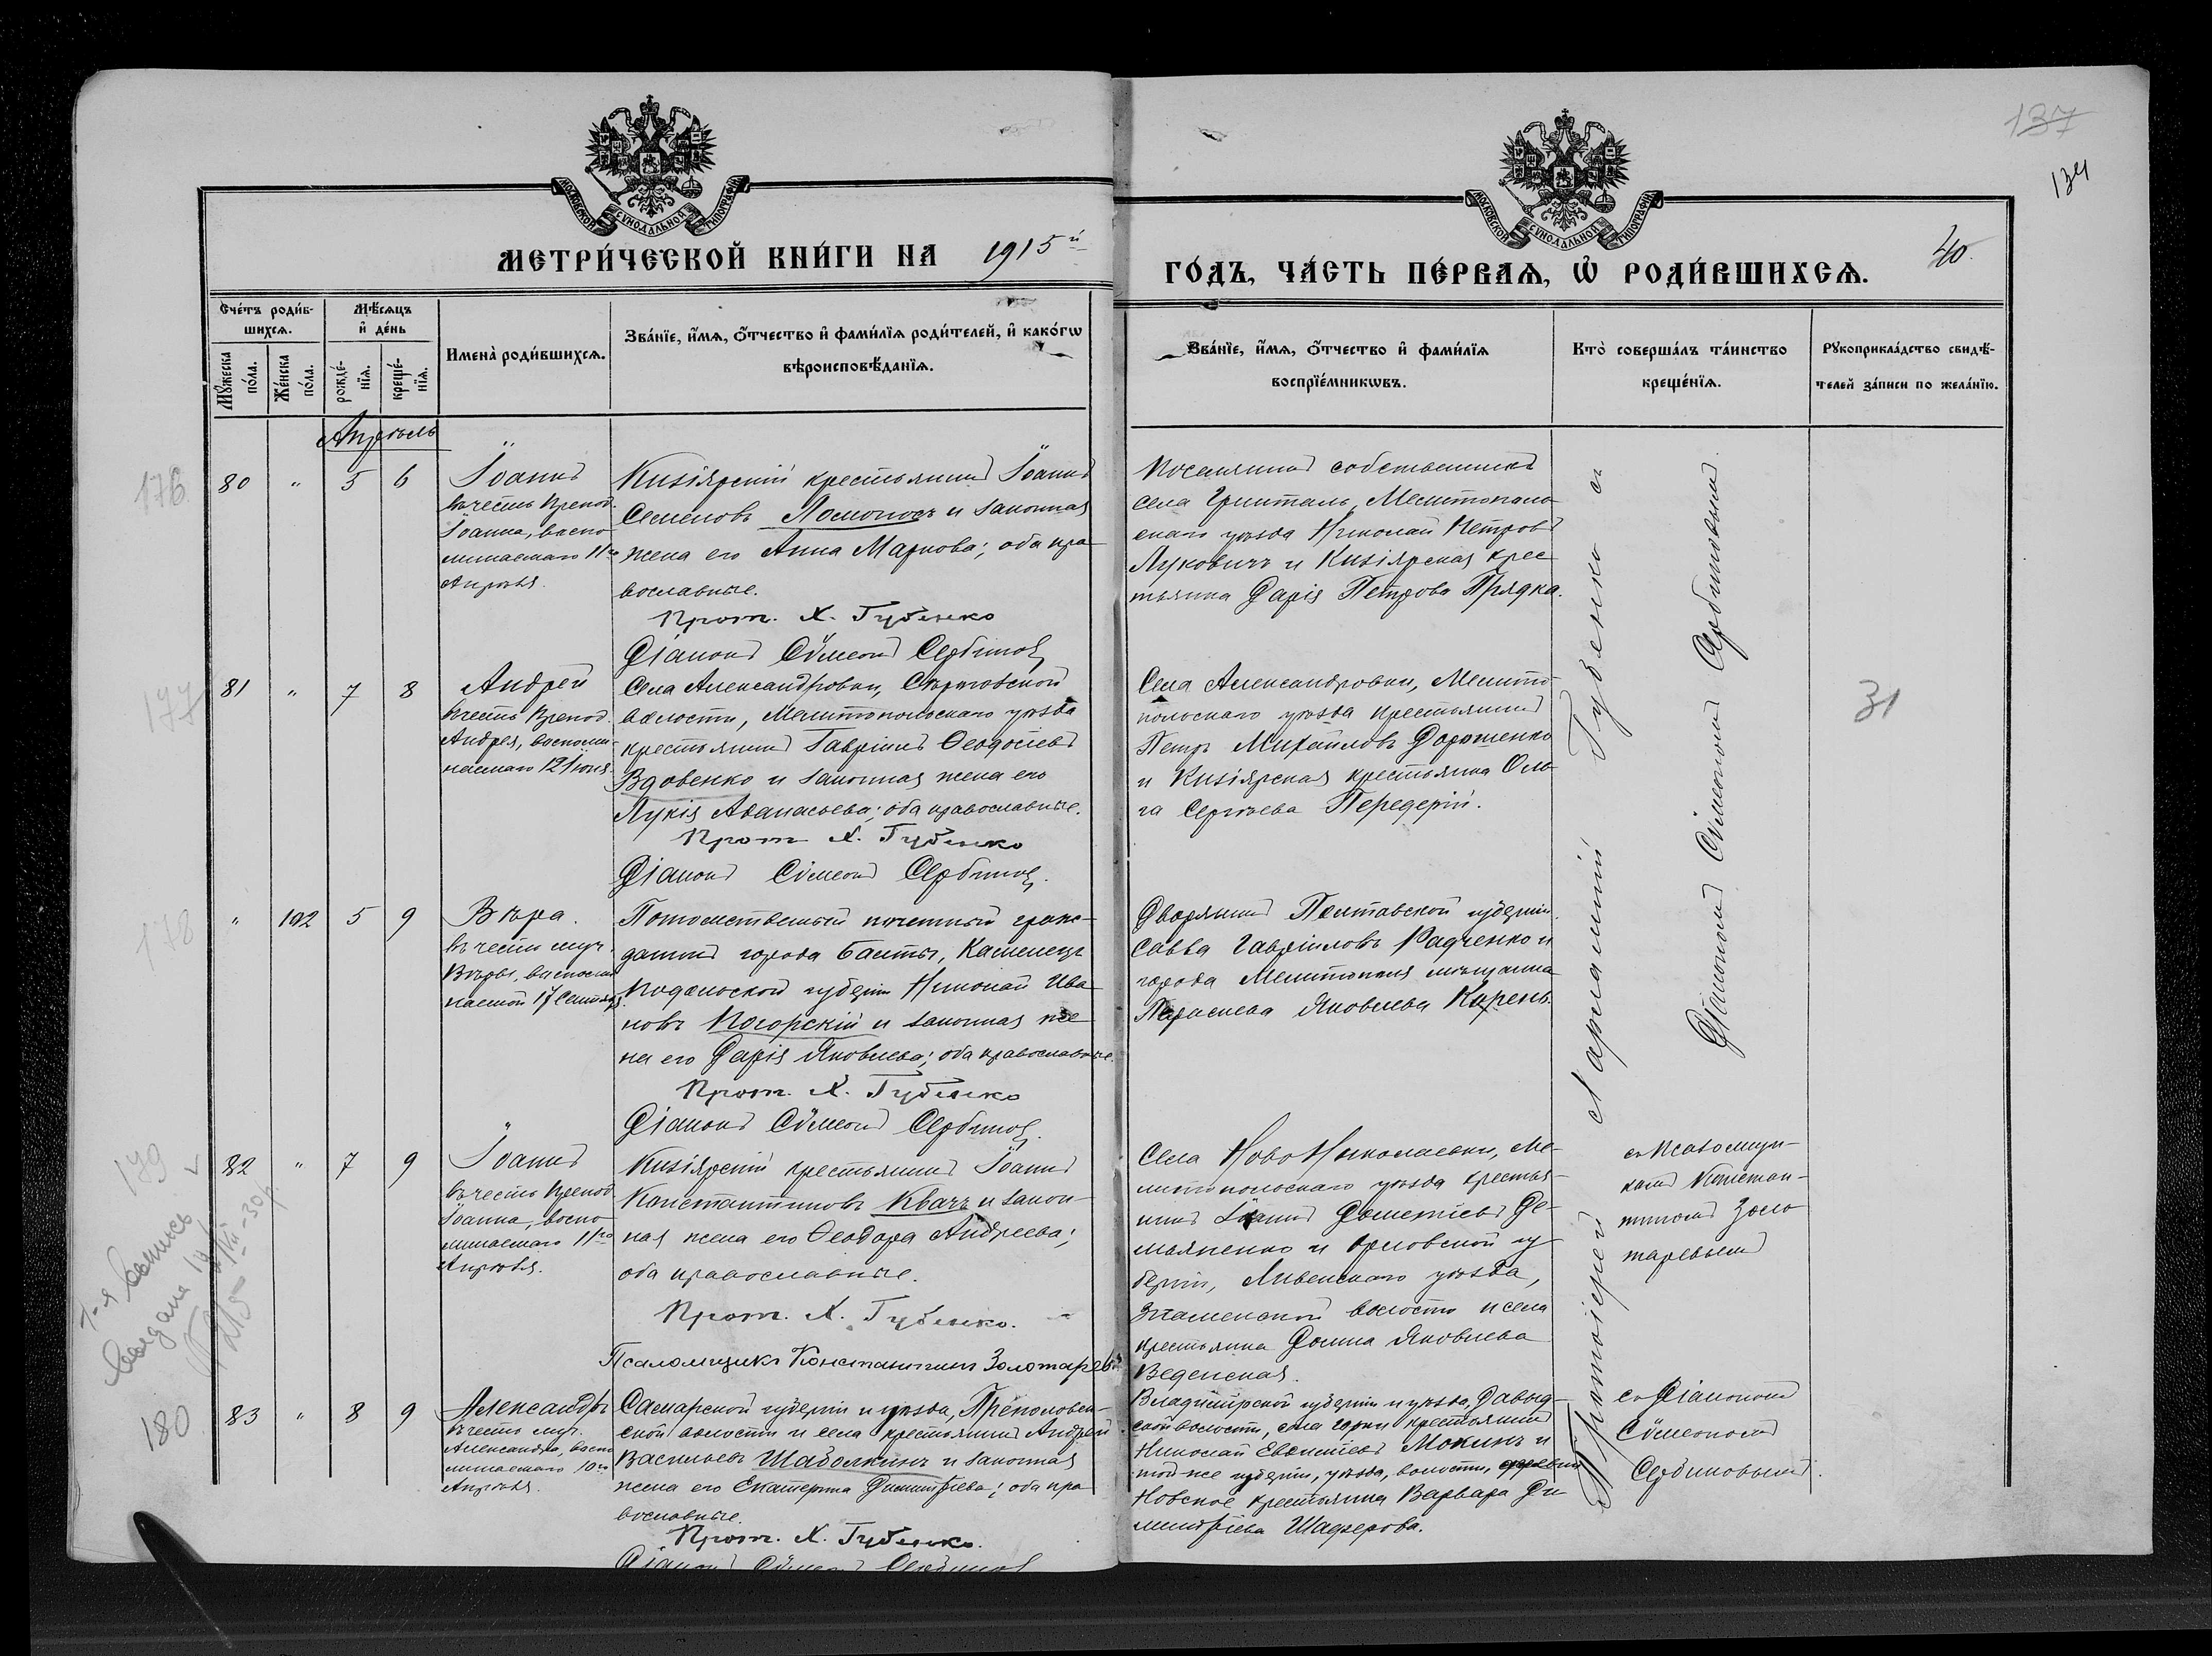 137
134
МОСКОВСКОЙ СѴНОДАЛЬНОЙ ТИПОГРАФІИ
МОСКОВСКОЙ СѴНОДАЛЬНОЙ ТИПОГРАФІИ
МЕТРИ́ЧЕСКОЙ КНИ́ГИ НА 1915й
ГО́ДЪ, ЧА́СТЬ ПЕ́РВАѦ, Ѡ҆ РОДИ́ВШИХСѦ.
40.
Сче́тъ роди́в-
шихсѧ.
Мꙋ́жеска по́ла.
Же́нска по́ла.
Мѣ́сѧцъ
и҆ де́нь
рожде́-
нїѧ.
креще́-
нїѧ.
Имена̀ роди́вшихсѧ.
Зва́нїе, и҆́мѧ, ѻ҆́тчество и҆ фами́лїѧ роди́телей, и҆ како́гѡ
вѣроисповѣ́данїѧ.
Зва́нїе, и҆́мѧ, ѻ҆́тчество и҆ фами́лїѧ
воспрїе́мникѡвъ.
Кто̀ соверша́лъ та́инство
креще́нїѧ.
Рꙋкоприкла́дство свидѣ́-
телей за́писи по жела́нїю.
Апрѣль
176
80 " 5 6
Іоаннъ
въ честь Препод.
Іоанна, воспо
минаемаго 11го
Апрѣля.
Кизіярскій крестьянинъ Іоаннъ
Семеновъ Ломоносъ и законная
жена его Анна Маркова; оба пра
вославные.
Прот. Л. Губенко
Діаконъ Сѵмеонъ Сербиновъ
Поселянинъ собственникъ
села Гринталь, Мелитополь
скаго уѣзда Николай Петровъ
Луковичъ и Кизіярская крес
тьянка Дарія Петрова Прядка.
177
81 " 7 8
Андрей
въ честь Препод.
Андрея, воспоми
наемаго 12 Іюня.
Села Александровки,
волости, Мелитопольскаго уѣзда
крестьянинъ Гавріилъ Ѳеодосіевъ
Вдовенко и законная жена его
Лукія Аѳанасьева; оба православные.
Прот. Л. Губенко
Діаконъ Сѵмеонъ Сербиновъ.
Села Александровки, Мелито
польскаго уѣзда крестьянинъ
Петръ Михайловъ Дорошенко
и Кизіярская крестьянка Оль
га Сергѣева Передерій.
31
178
" 102 5 9
Вѣра.
въ честь муч.
Вѣры, воспоми
наемой 17 Сентября.
Потомственный почетный граж-
данинъ города Балты, Каменецъ
Подольской губерніи Николай Ива
новъ Погорскій и законная же
на его Дарія Яковлева; оба православные.
Прот. Л. Губенко
Діаконъ Сѵмеонъ Сербиновъ.
Дворянинъ Полтавской губерніи
Савва Гавріиловъ Радченко и
города Мелитополя мѣщанка
Параскева Яковлева Корень.
179
1-я выпись
выдана
82 " 7 9
Іоаннъ
въ честь Препод.
Іоанна, воспо
минаемаго 11го
Апрѣля.
Кизіярскій крестьянинъ Іоаннъ
Константиновъ Квачъ и закон-
ная жена его Ѳеодора Андреева;
оба православные.
Прот. Л. Губенко.
Псаломщикъ Константинъ Золотаревъ
Села НовоНиколаевки, Ме-
литопольскаго уѣзда крестья-
нинъ Іоаннъ Дометіевъ Де-
мьяненко и Орловской гу
берніи, Ливенскаго уѣзда,
Знаменской волости и села
крестьянка Домна Яковлева
Веденская.
съ Псаломщи-
комъ Констан-
тиномъ Золо
таревымъ
180
83 " 8 9
Александръ
въ честь муч.
Александра, воспо
минаемаго 10го
Апрѣля.
Самарской губерніи и уѣзда, Преполовен-
ской волости и села крестьянинъ Андрей
Васильевъ Шаболкинъ и законная
жена его Екатерина Димитріева; оба пра
вославные.
Прот. Л. Губенко.
Діаконъ Сѵмеонъ Сербиновъ
Владимірской губерніи и уѣзда, Давыд-
ской волости, села Горки крестьянинъ
Николай Мокинъ и
той-же губерніи, уѣзда, волости, деревни
Новское крестьянка Варвара Ди
митріева Шадерова.
съ Діакономъ
Сѵмеономъ
Сербиновымъ.
Протоіерей Ларменскій Губенко съ
Діакономъ Сѵмеономъ Сербиновымъ